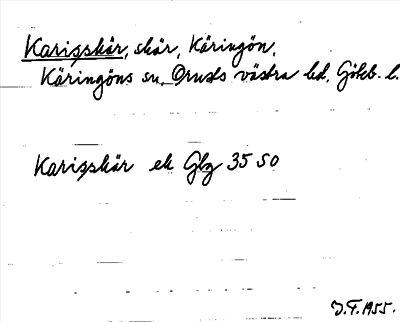 Karisskär, skär, Käringön,
Käringöns sn, Orusts västra hd, Göteb. l.
Karisskär ek Glg 35 SO
J.F. 1955.